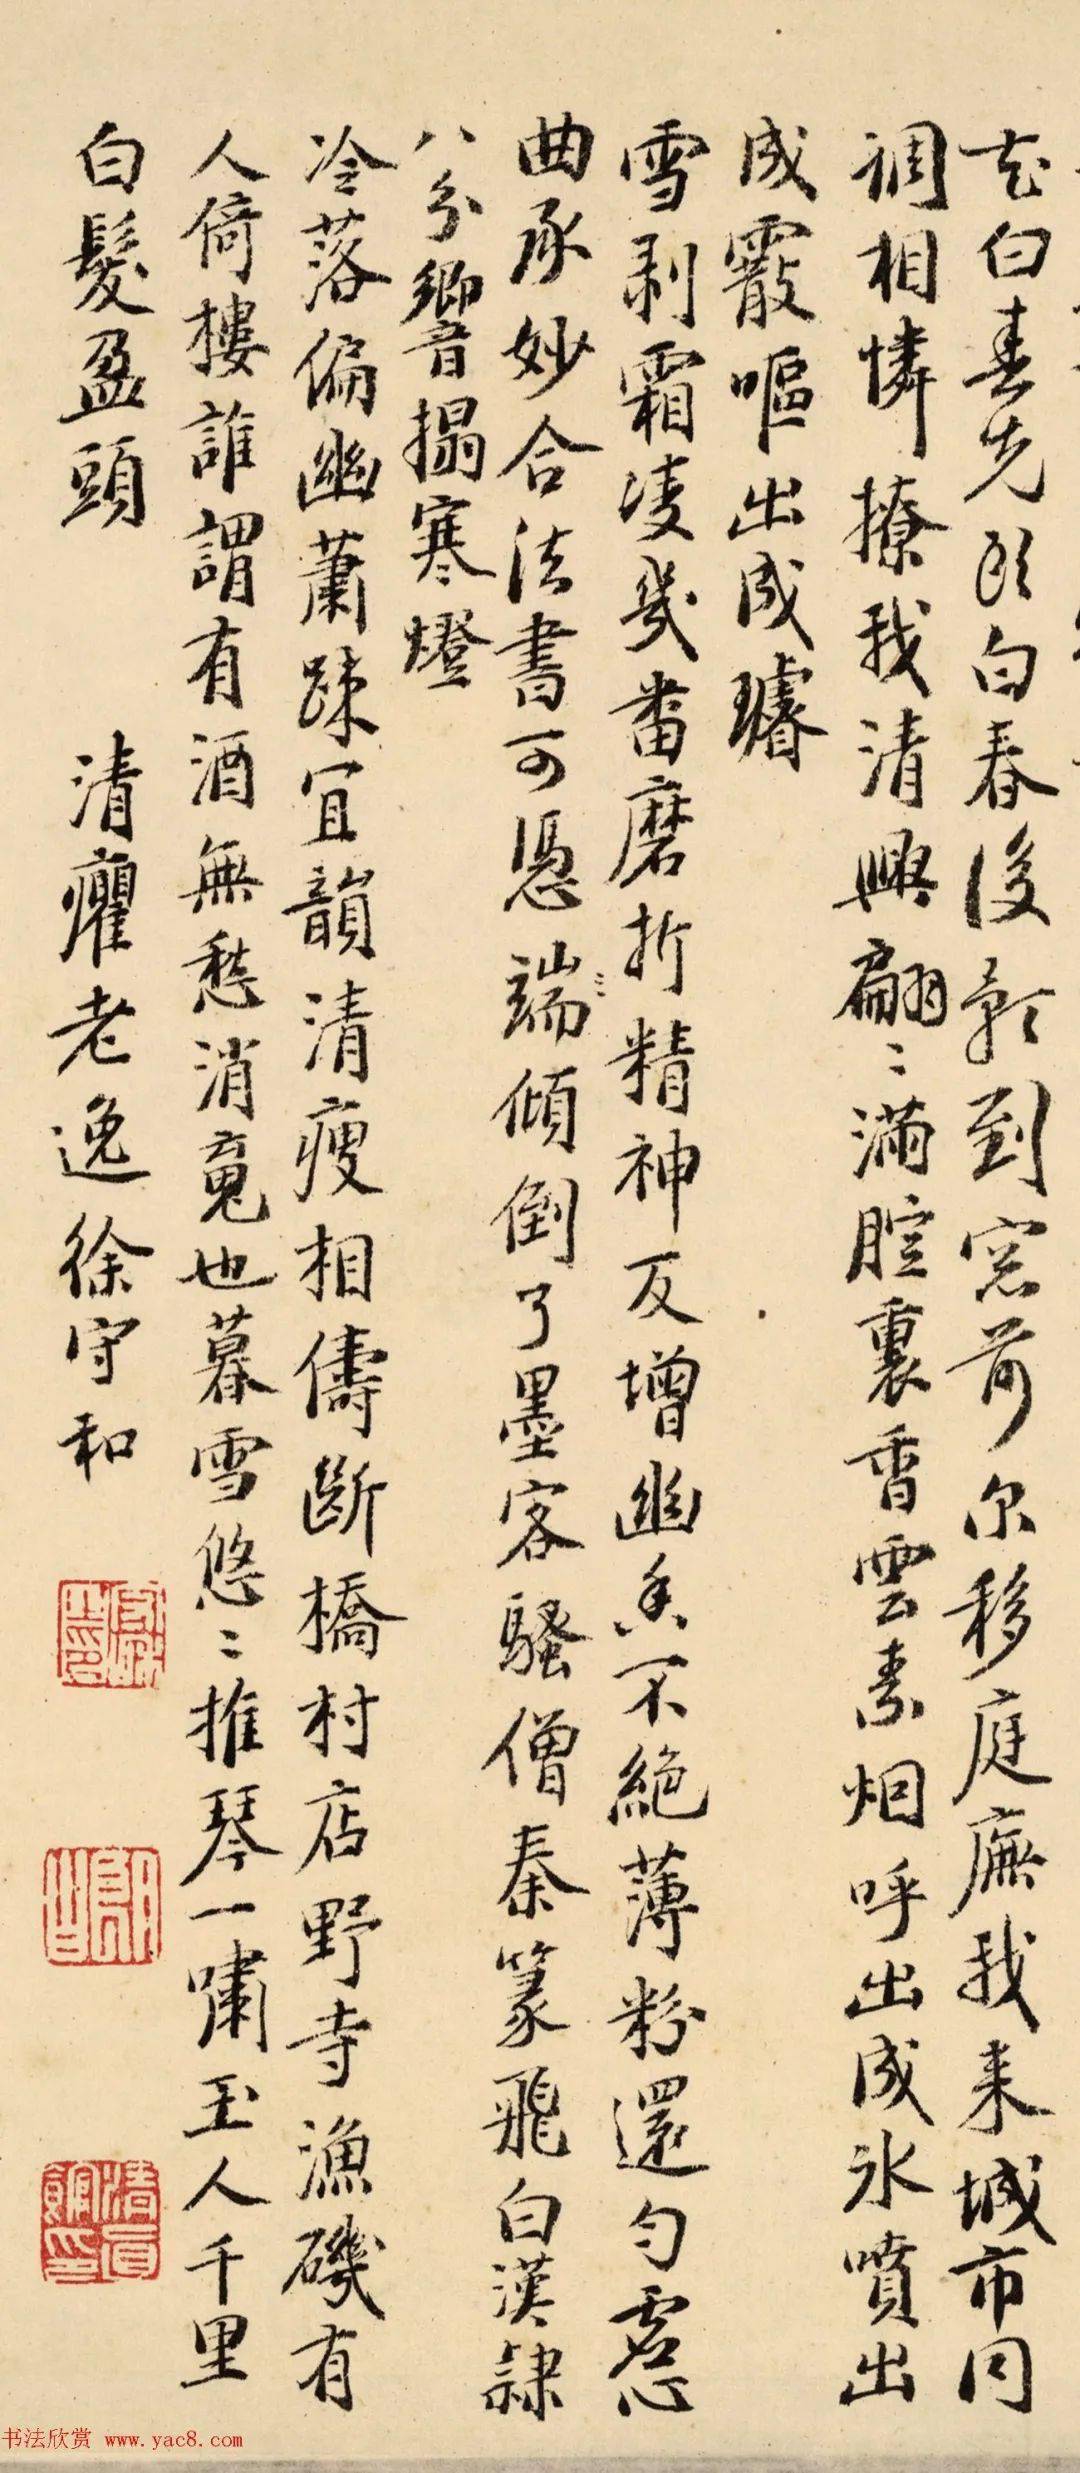 花白春先頭白春後龕到窓前尔移庭廡我来城市同
調相憐撩我清興翩〻滿腔裏香雲素烟呼出成氷噴出
成霰嘔出成璿
雪剥霜凌幾番磨折精神反增幽香不絶薄粉還勻
曲承妙合法書可憑端〻傾倒了墨客騷僧秦篆飛白漢隷
八分響搨寒燈
冷落偏幽蕭疎宜韻清瘦相儔斷橋村店野寺漁磯有
人倚樓誰謂有酒無愁消竟也暮雪悠〻推琴一嘯玉人千里
白髪盈頭
清癯老逸徐守和
书法欣赏 www.yac8.com